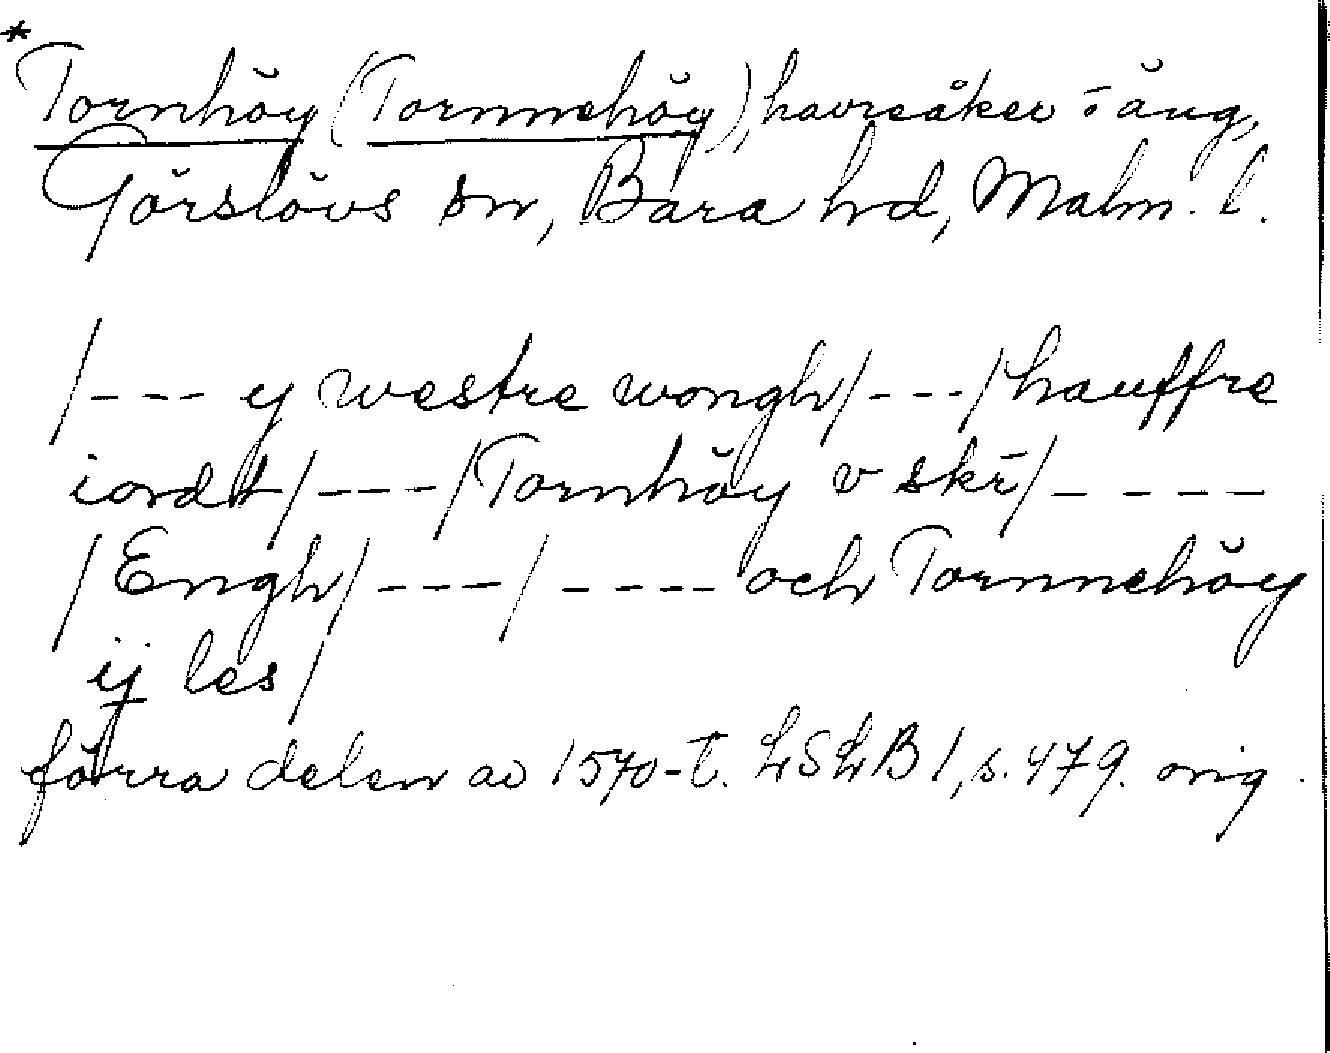 *
Tornhöy (Tornnehöy), havreåker i äng,
Görslövs sn, Bara hd, Malm. l.
/--- y westre wongh/---/hauffre
iordt/---/Tornhöy v skr̄/----
/Engh/---/---- och Tornnehöy
ij les/
förra delen av 1570-t. LSLB 1, s. 479. orig.